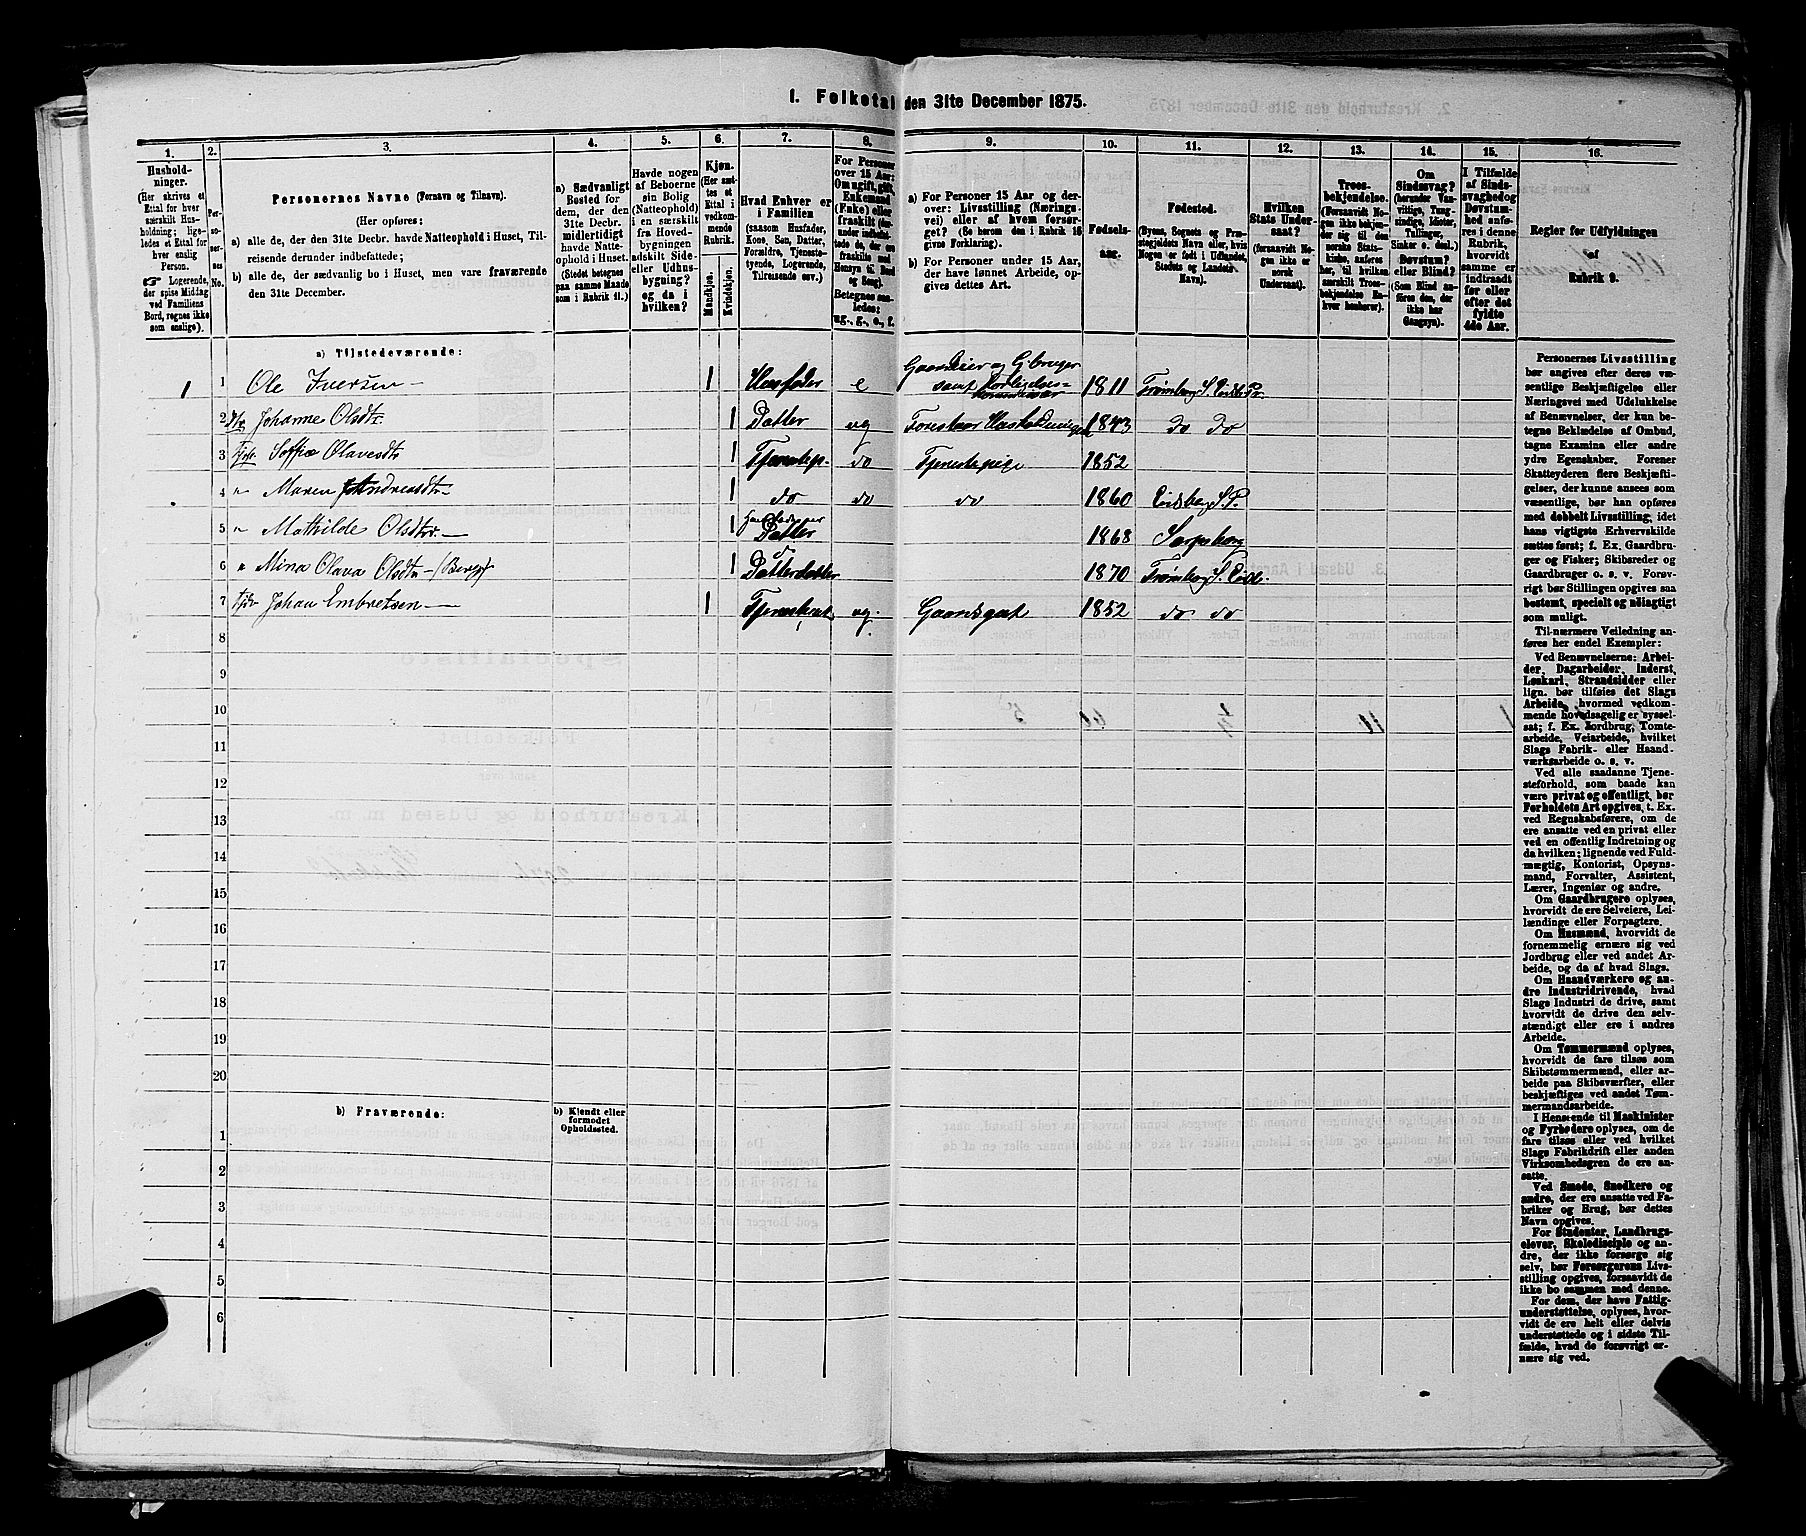 1. Folketal den 31te December 1875.
1.
2.
3.
4.
5.
6.
7.
8.
9.
10.
11.
12.
13.
14.
15.
16.
Husholdninger.
(Her skrives et
Ettal for hver
særskilt Husholdning;
ligeledes et Ettal for
hver enslig
Person.
Logerende,
der spise Middag
ved Familiens
Bord, regnes ikke
som enslige).
Personernes No.
Personernes Navne (Fornavn og Tilnavn).
(Her opføres:
a) alle de, der den 31te Decbr. havde Natteophold i Huset, Tilreisende
derunder indbefattede;
b) alle de, der sædvanlig bo i Huset, men vare fraværende
den 31te December.
a) Sædvanligt
Bosted for
dem, der den
31te Decbr.
midlertidigt
havde Natteophold
i Huset.
(Stedet betegnes
paa samme Maade
som i Rubrik 11.)
Havde nogen
af Beboerne
sin Bolig
(Natteophold)
i en særskilt
fra Hovedbygningen
adskilt Side-
eller Udhusbygning?
og da i
hvilken?
Kjøn.
(Her sættes et
Ettal i
vedkommende
Rubrik.
Mandkjøn.
Kvindekjøn.
Hvad Enhver er
i Familien
(saasom Husfader,
Kone, Søn, Datter,
Forældre, Tjenestetyende,
Logerende,
Tilreisende osv.).
For Personer
over 15 Aar:
Om ugift, gift,
Enkemand
(Enke) eller
fraskilt
Betegnes saaledes:
ug., g., e., f.
a) For Personer 15 Aar og derover:
Livsstilling (Næringsvei)
eller af hvem forsørget?
(Se herom den i Rubrik 16
givne Forklaring).
b) For Personer under 15 Aar,
der have lønnet Arbeide, opgives
dettes Art.
Fødselsaar.
Fødested.
(Byens, Sognets og Præstegjeldets
Navn eller, hvis
Nogen er født i Udlandet,
Stedets og Landets
Navn).
Hvilken
Stats Undersaat?
(forsaavidt Nogen
ikke er
norsk
Undersaat).
Troesbekjendelse.
(Forsaavidt Nogen
ikke bekjender
sig til den
norske Statskirke,
anføres
her, til hvilken
særskilt Troesbekjendelse
Enhver henhører).
Om
Sindssvag?
(herunder Vanvittige,
Tungsindige,
Idioter,
Tullinger,
Sinker o. desl.)
Døvstum?
eller Blind?
(Som Blind anføres
den, der
ikke har
Gangsyn).
I Tilfælde
af Sindssvaghed
og
Døvstumhed
anføres
i denne
Rubrik,
hvorvidt
samme er
indtraadt
før eller
efter det
fyldte
4de Aar.
Regler for Udfyldningen
af
Rubrik 9.
a) Tilstedeværende:
1 1 Ole Iversen 1 Husfader e Gaardeier og G.bruger samt Forligelseskommissær 1811 Trømborg S. Eidsb. Pr.
2 Dtr Johanne Olsdtr 1 Datter ug Forestaar Husholdningen 1843 do do
3 Tjp. Soffie Olavesdtr 1 Tjenestep. do Tjenestepige 1852
4 " Maren Andreasdtr 1 do do do 1860 Eidsberg S. P.
5 " Mathilde Olsdtr. 1 Datter 1868 Sarpsborg
6 " Mina Olava Olsdtr (Berg) 1 Datterdatter 1870 Trømborg S. Eidb.
7 Johan Embretsen 1 Tjenestkarl ug. Gaardsgut 1852 do do
8
9
10
11
12
13
14
15
16
17
18
19
20
b) Fraværende:
b) Kjendt eller
formodet
Opholdssted.
1
2
3
4
5
6
Personernes Livsstilling
bør angives efter deres væsentlige
Beskjæftigelse eller
Næringsvei med Udelukkelse
af Benævnelser, der kun betegne
Beklædelse af Ombud,
tagne Examina eller andre
ydre Egenskaber. Forener
Skatteyderen flere Beskjæftigelser,
der kunne ansees som
væsentlige, bør han opføres
med dobbelt Livsstilling, idet
hans vigtigste Erhvervskilde
sættes først; f. Ex. Gaardbruger
og Fisker; Skibsreder og
Gaardbruger o. s. v. Forøvrigt
bør Stillingen opgives saa
bestemt, specielt og nøiagtigt
som muligt.
Til nærmere Veiledning anføres
her endel Exempler:
Ved Benævnelserne: Arbeider,
Dagarbeider, Inderst,
Løskarl, Strandsidder eller
lign. bør tilføies det Slags
Arbeide, hvormed vedkommende
hovedsagelig er sysselsat;
f. Ex. Jordbrug, Tomtearbeide,
Veiarbeide, hvilket
Slags Fabrik- eller Haandværksarbeide
o. s. v.
Ved alle saadanne Tjenesteforhold,
som baade kan
være privat og offentligt, bør
Forholdets Art opgives, t. Ex.
ved Regnskabsførere, om de
ere ansatte ved en privat eller
ved en offentlig Indretning og
da hvilken; lignende ved Fuldmægtig,
Kontorist, Opsynsmand,
Forvalter, Assistent,
Lærer, Ingeniør og andre.
Om Gaardbrugere oplyses,
hvorvidt de ere Selveiere, Leilændinge
eller Forpagtere.
Om Husmænd, hvorvidt de
fornemmelig ernære sig ved
Jordbrug eller ved andet Arbeide,
og da af hvad Slags.
Om Haandværkere og andre
Industridrivende, hvad
Slags Industri de drive, samt
hvorvidt de drive den selvstændigt
eller ere i andres
Arbeide.
Om Tømmermænd oplyses,
hvorvidt de fare tilsøs som
Skibstømmermænd, eller arbeide
paa Skibsværfter, eller
beskjæftiges ved andet Tømmermandsarbeide.
I Henseende til Maskinister
og Fyrbødere oplyses, om de
fare tilsøs eller ved hvilket
Slags Fabrikdrift eller anden
Virksomhedsgren de ere ansatte.
Ved Smede, Snedkere og
andre, der ere ansatte ved Fabriker
og Brug, bør dettes
Navn opgives.
For Studenter, Landbrugselever,
Skoledisciple og andre,
der ikke forsørge sig
selv, bør Forsørgerens Livsstilling
opgives, forsaavidt de
ikke bo sammen med denne.
For dem, der have Fattigunderstøttelse,
oplyses, hvorvidt
de ere helt eller delvis
understøttede og i sidste Tilfælde,
hvad de forøvrigt ernære
sig ved.